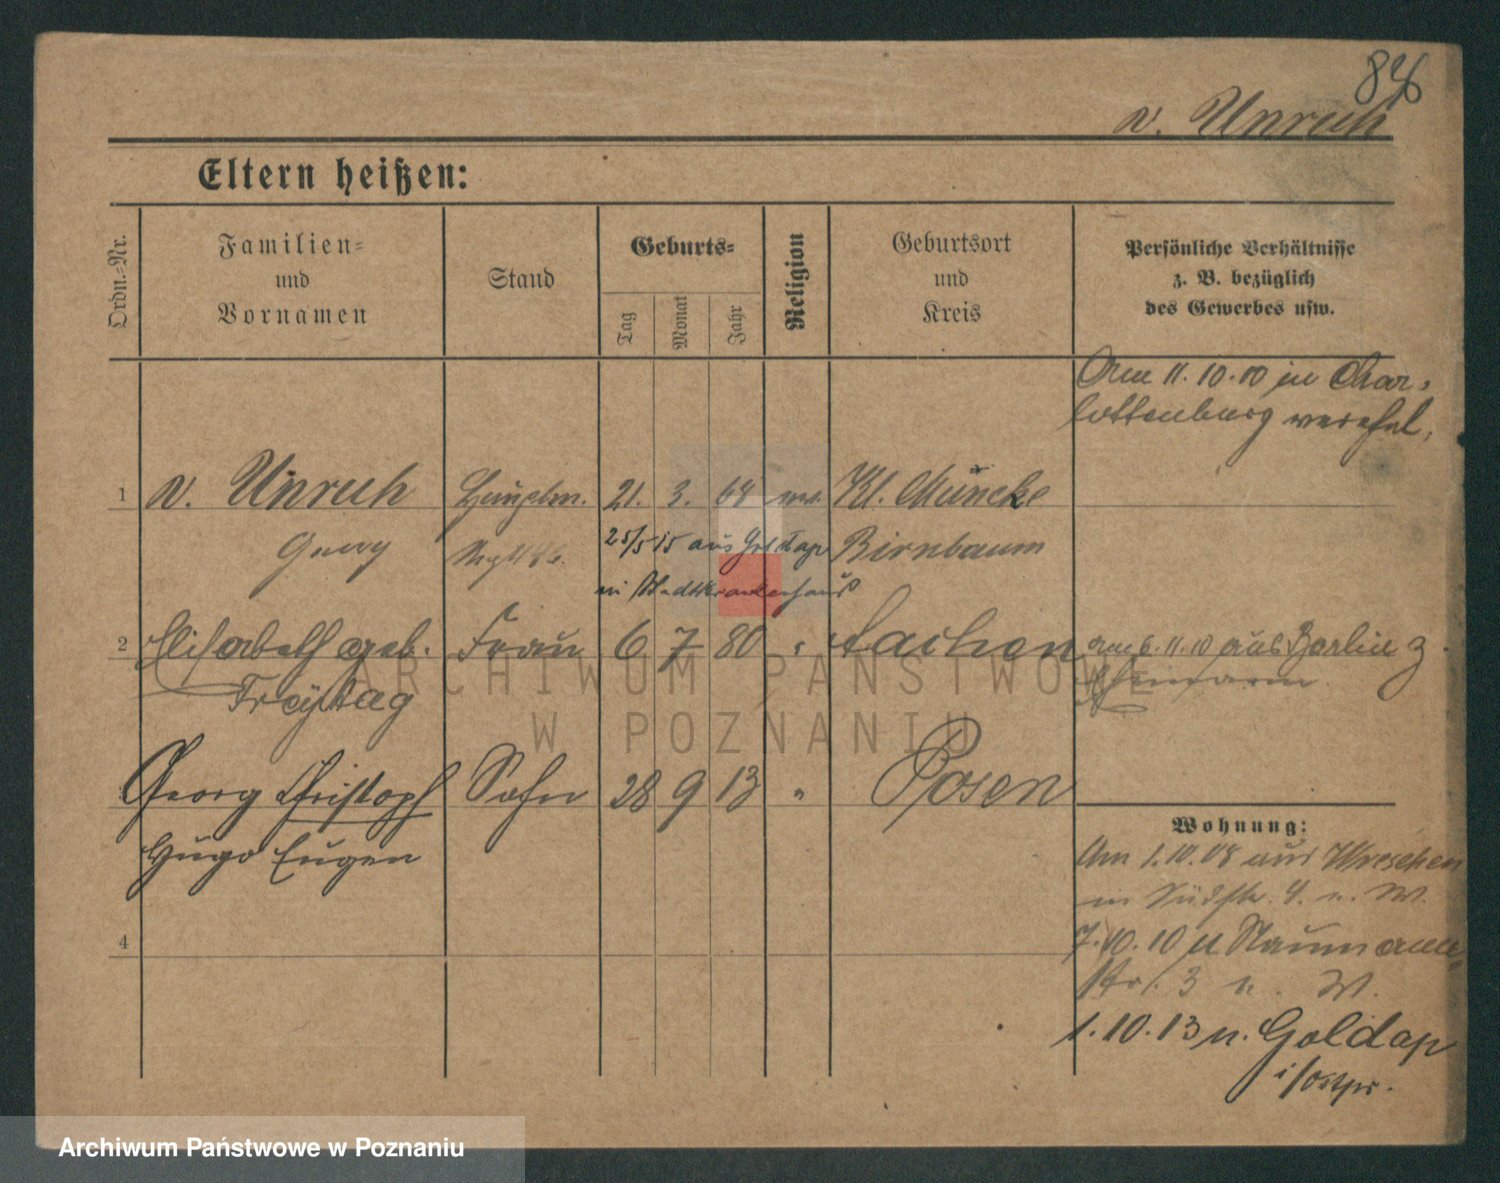 846
v. Unruh
Eltern heißen:
Ordn.-Nr.
Familien-
und
Vornamen
Stand
Geburts-
Tag
Monat
Jahr
Religion
Geburtsort
und
Kreis
Persönliche Verhältnisse
z. B. bezüglich
des Gewerbes usw.
Am 11.10.10 in Char-
lottenburg verehel.
1 v. Unruh Hauptm. 21. 3. 68 Kl. Münche
Georg Birnbaum
25/5 15 aus Goldap
in Stadtkrankenhaus
2 Elisabeth geb. Frau 6 7 80 " Aachen am 6.11.10 aus Berlin z.
Freytag Ehemann
3 Georg Christoph Sohn 28 9 13 " Posen
Hugo Eugen
Wohnung:
Am 1.10.08 aus Wreschen
in Südstr. 4. n. W.
4
7.10.10 n. Naumann-
str. 3 n. W.
1.10.13 n. Goldap
i/Ostpr.
ARCHIWUM PAŃSTWOWE
W POZNANIU
Archiwum Państwowe w Poznaniu